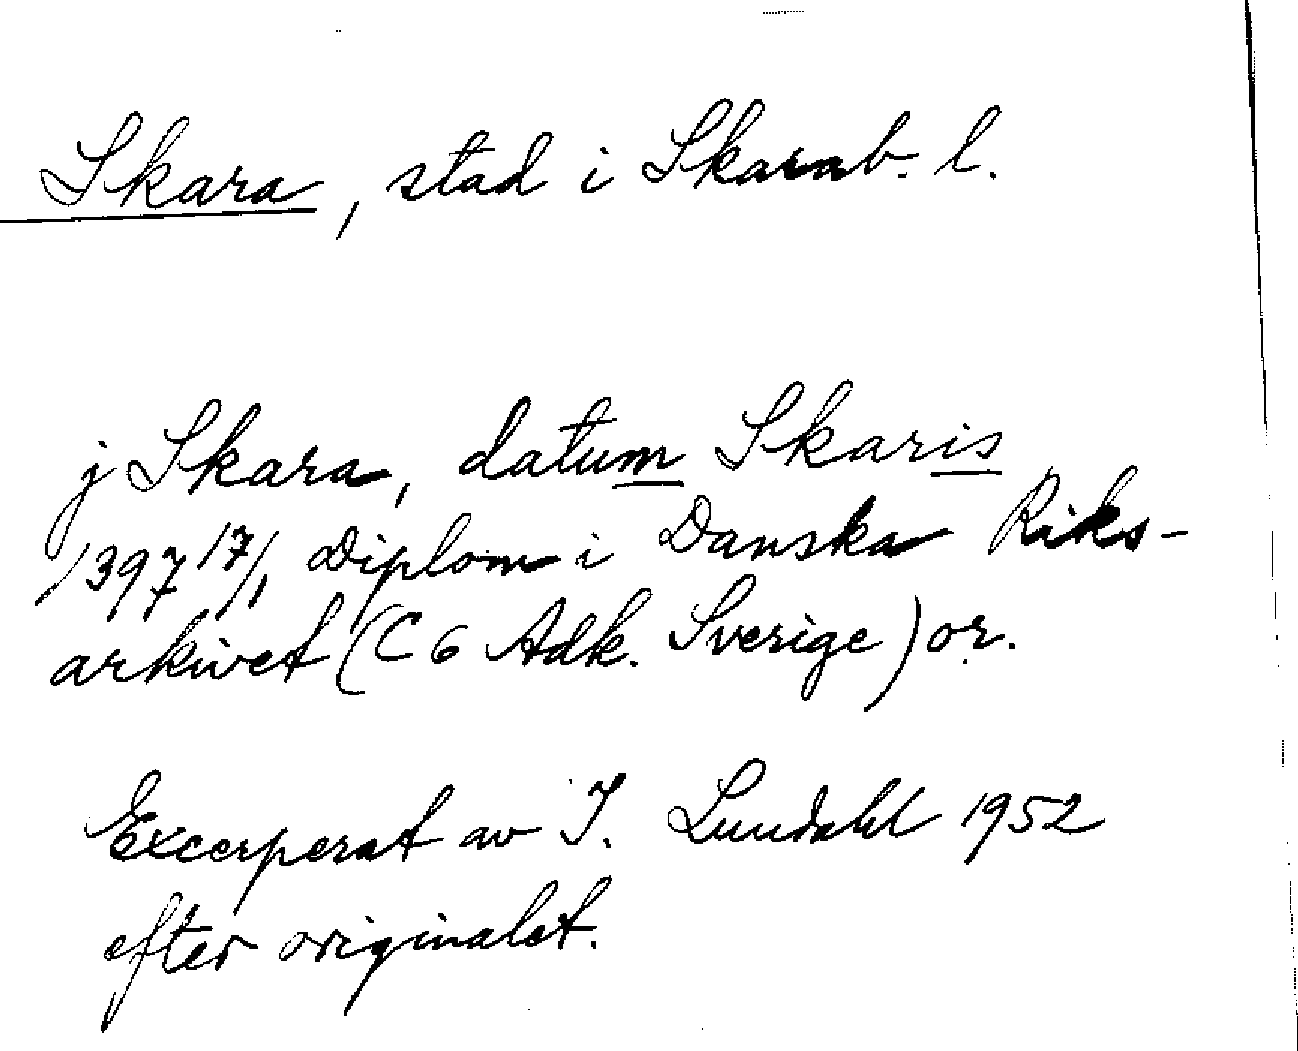 Skara, stad i Skarab. l.
j Skara, datum Skaris
1397 17/1 Diplom i Danska Riks-
arkivet (C 6 Adk. Sverige) or.
Excerperat av I. Lundahl 1952
efter originalet.